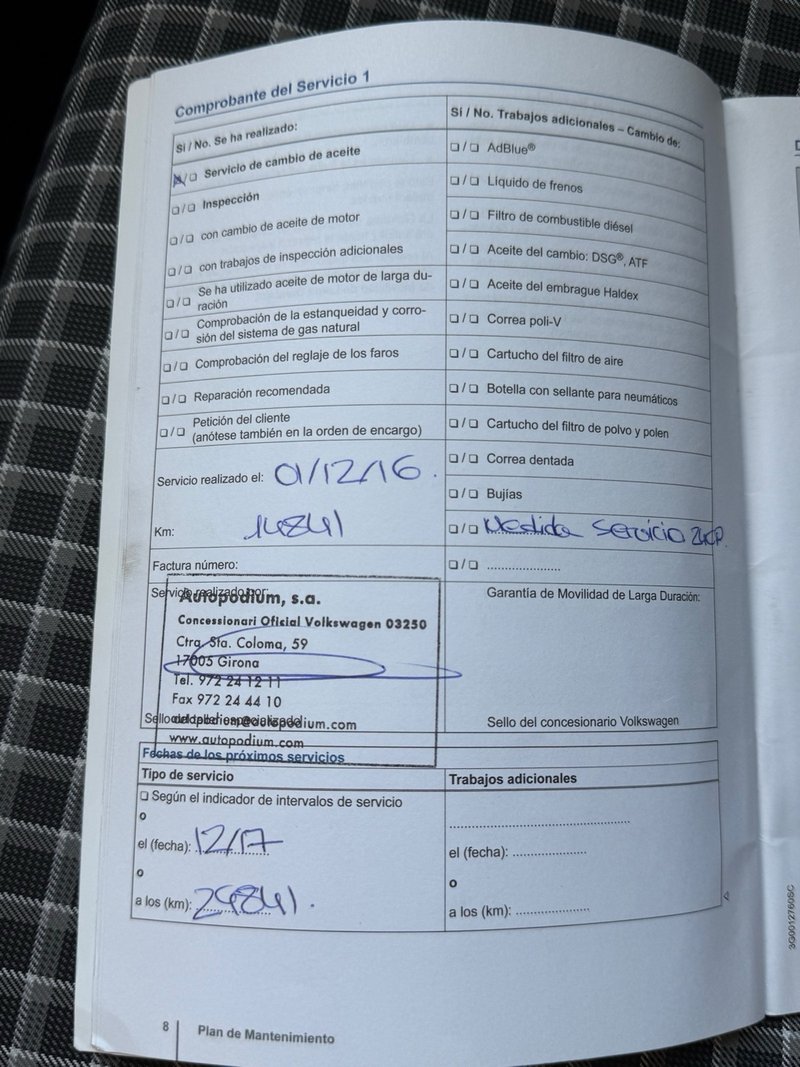 Comprobante del Servicio 1
Sí / No. Se ha realizado:
❏/❏ Servicio de cambio de aceite
❏/❏ Inspección
❏/❏ con cambio de aceite de motor
❏/❏ con trabajos de inspección adicionales
❏/❏ Se ha utilizado aceite de motor de larga du-
ración
❏/❏ Comprobación de la estanqueidad y corro-
sión del sistema de gas natural
❏/❏ Comprobación del reglaje de los faros
❏/❏ Reparación recomendada
❏/❏ Petición del cliente
(anótese también en la orden de encargo)
Servicio realizado el: 01/12/16.
Km: 14841
Factura número:
Servicio realizado por:
Autopodium, s.a.
Concessionari Oficial Volkswagen 03250
Ctra. Sta. Coloma, 59
17005 Girona
Tel. 972 24 12 11
Fax 972 24 44 10
@autopodium.com
www.autopodium.com
Sí / No. Trabajos adicionales – Cambio de:
❏/❏ AdBlue®
❏/❏ Líquido de frenos
❏/❏ Filtro de combustible diésel
❏/❏ Aceite del cambio: DSG®, ATF
❏/❏ Aceite del embrague Haldex
❏/❏ Correa poli-V
❏/❏ Cartucho del filtro de aire
❏/❏ Botella con sellante para neumáticos
❏/❏ Cartucho del filtro de polvo y polen
❏/❏ Correa dentada
❏/❏ Bujías
❏/❏ Medida Servicio
❏/❏ .....................
Garantía de Movilidad de Larga Duración:
Sello del concesionario Volkswagen
Fechas de los próximos servicios
Tipo de servicio
❏ Según el indicador de intervalos de servicio
o
el (fecha): 12/17
o
a los (km): 29841.
Trabajos adicionales
el (fecha): .....................
o
a los (km): .....................
8 Plan de Mantenimiento
3G0012760SC